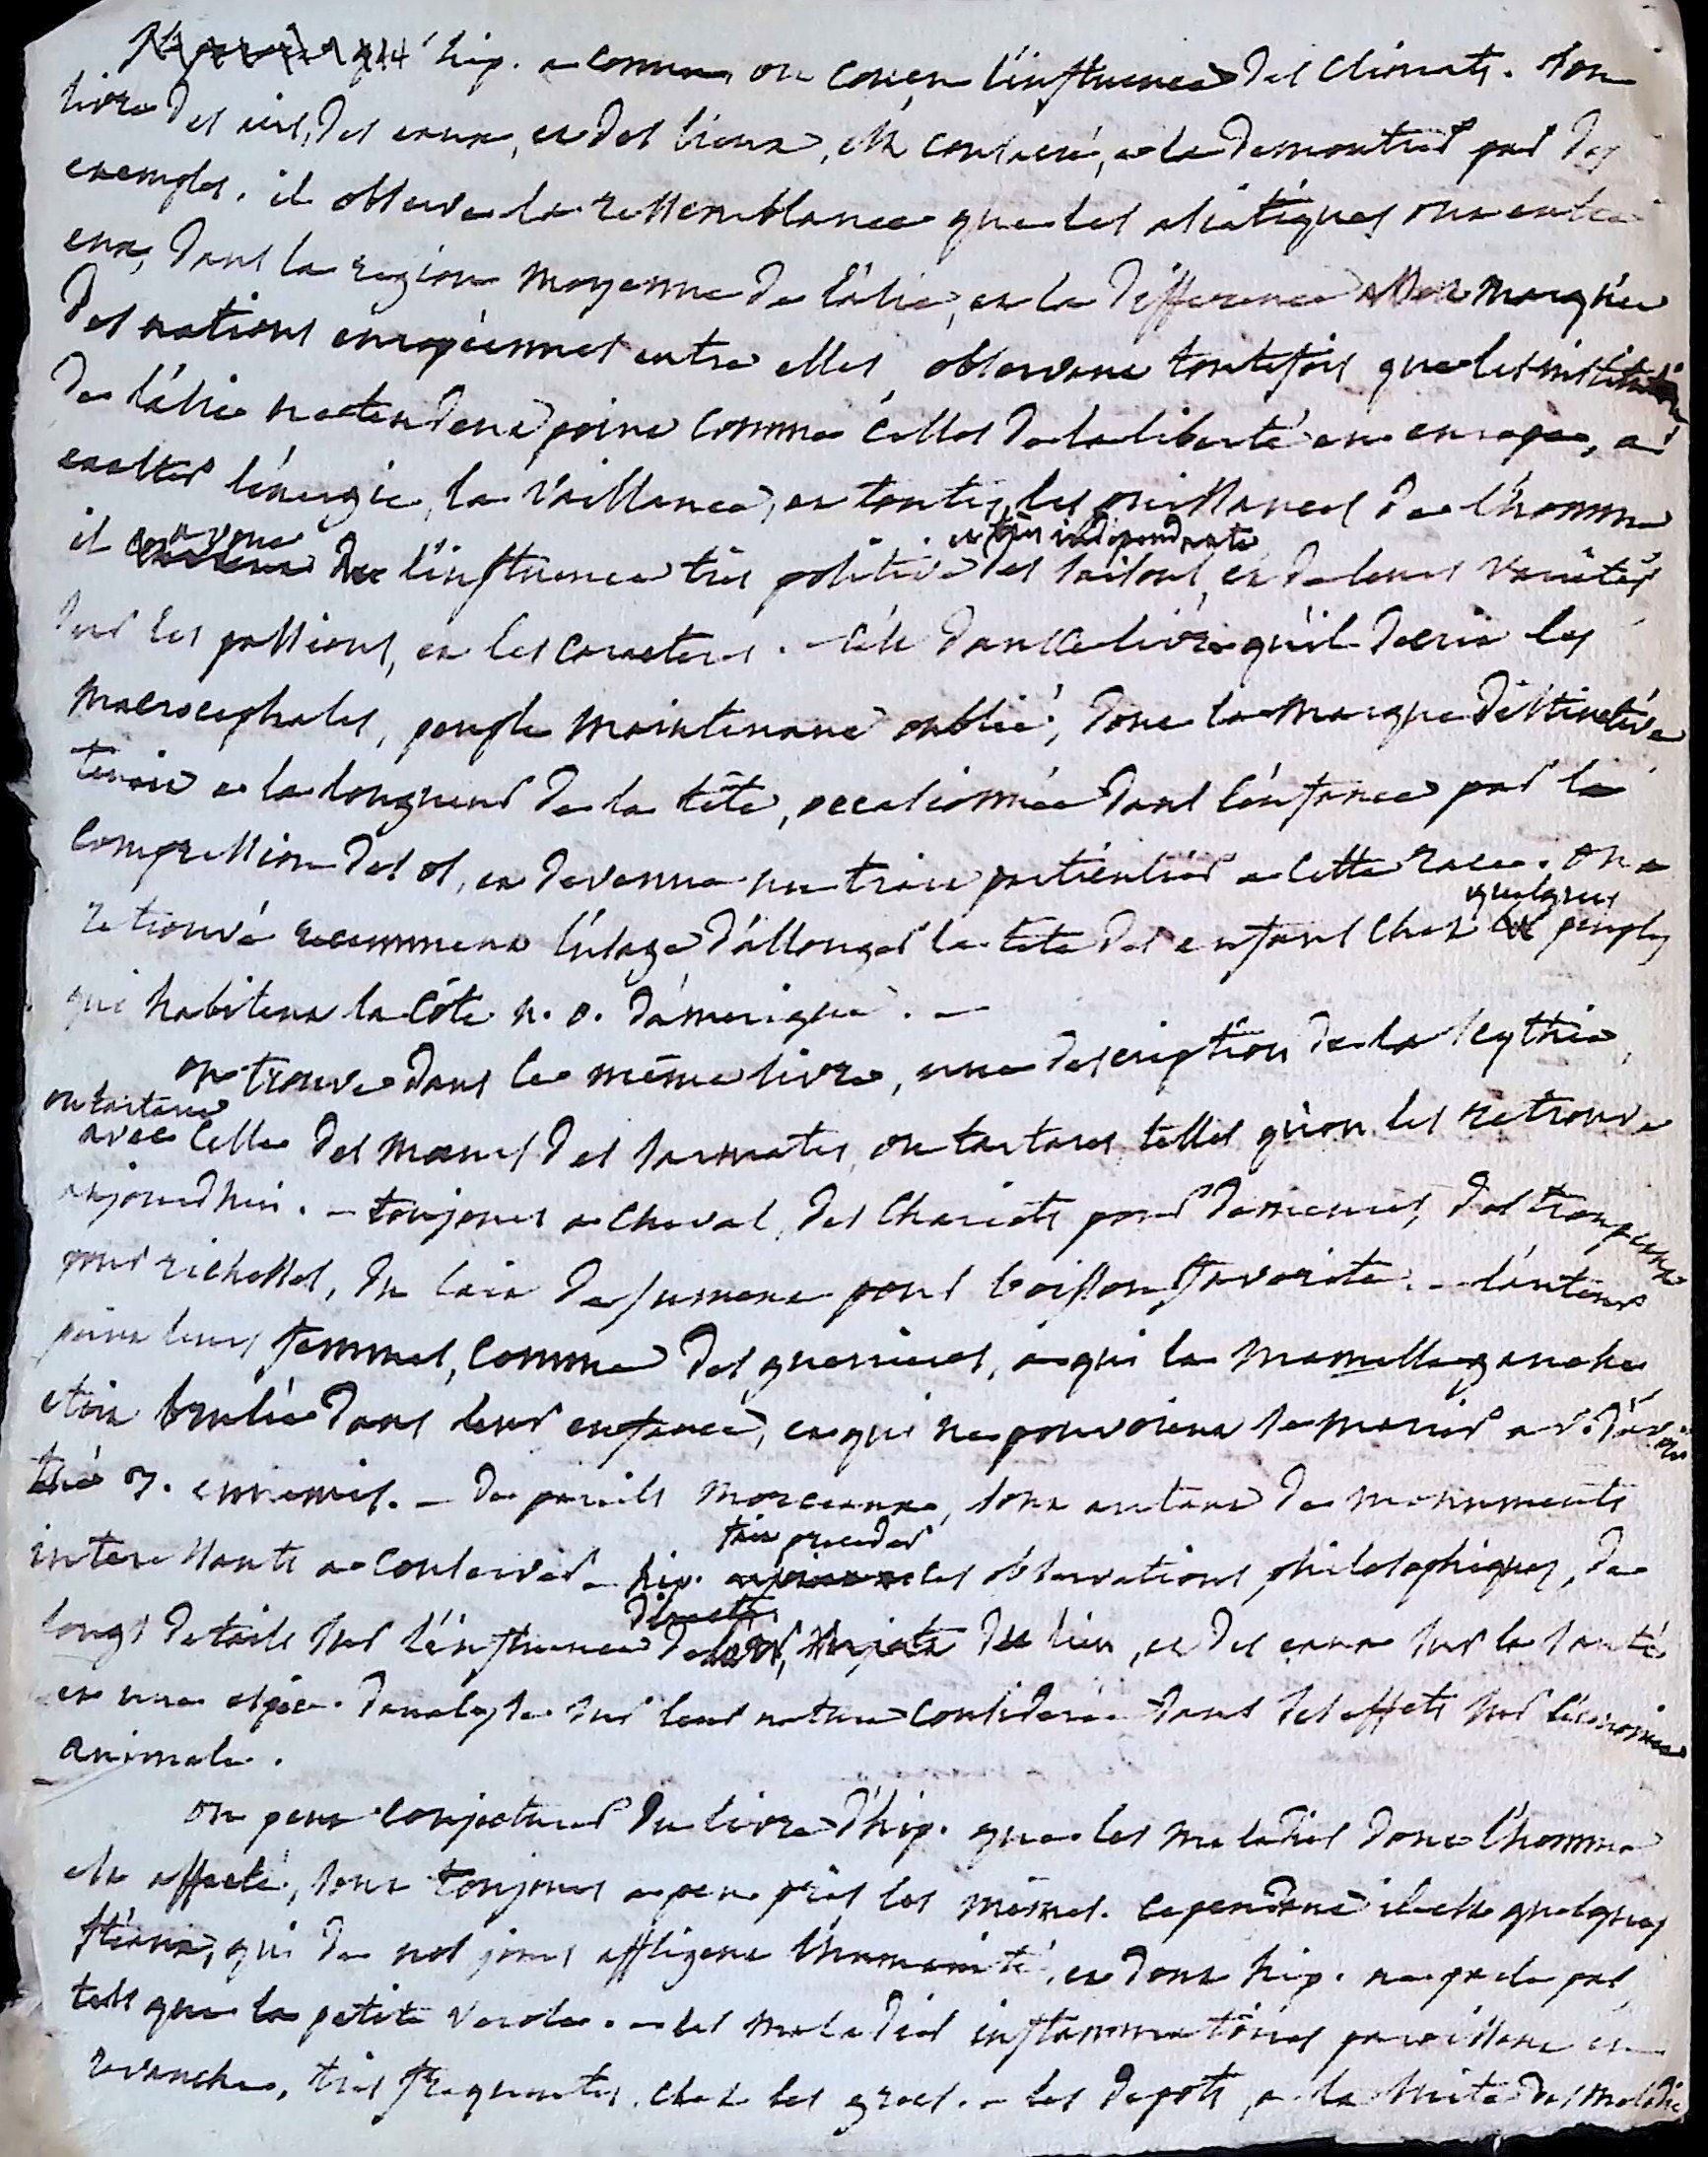 hip. a connu, ou conçu l'influence des climats. son
livre des airs, des eaux, et des lieux, est consacré, a la demontrer par des
exemples. il observe la ressemblance que les asiatiques ont entre
eux, dans la region moyenne de l'asie, et la difference marquée
des nations européennes entre elles, observant toutefois que les institutions
de l'asie ne tendent point comme celles de la liberté en europe, a
exalter l'énergie, la vaillance, et toutes les puissances de l'homme
et très independante
il avoue l'influence très positive des saisons, et de leurs varietés
sur les passions, et les caracteres. - c'est dans ce livre qu'il decrit les
macrocephales, peuple maintenant oublié, dont la marque distinctive
tenoit a la longueur de la tête, occasionnée dans l'enfance par la
compression des os, et devenue un trait particulier a cette race. on a
quelques
retrouvé recemment l'usage d'allonger la tete des enfans chez peuples
qui habitent la côte n. o. d'amerique. -
on trouve dans le même livre, une description de la scythie,
ou tartarie
avec celle des moeurs des sarmates, ou tartares, telles qu'on les retrouve
aujourd'hui. - toujours a cheval, des chariots pour demeures, des troupeaux
pour richesses, du lait de jument pour boisson favorite. - l'auteur
peint leurs femmes, comme des guerrieres, a qui la mamelle gauche
etoit brulée dans leur enfance, et qui ne pouvoient se marier av. d'avoir
tué 3. ennemis. - de pareils morceaux, sont autant de monuments
fait preceder
interessants a conserver - hip. ces observations philosophiques, de
directe
longs details sur l'influence du lieu, et des eaux sur la santé
et une espèce d'analyse sur leur nature considerée dans ses effets sur l'économie
animale.
on peut conjecturer du livre d'hip. que les maladies dont l'homme
est affecté, sont toujours a peu près les mêmes. cependant il est quelques
fléaux, qui de nos jours affligent l'humanité, et dont hip. ne parle pas,
tels que la petite verole. - les maladies inflammatoires paroissent en
revanche, très frequentes chez les grecs. - les depots, a la suite des maladies